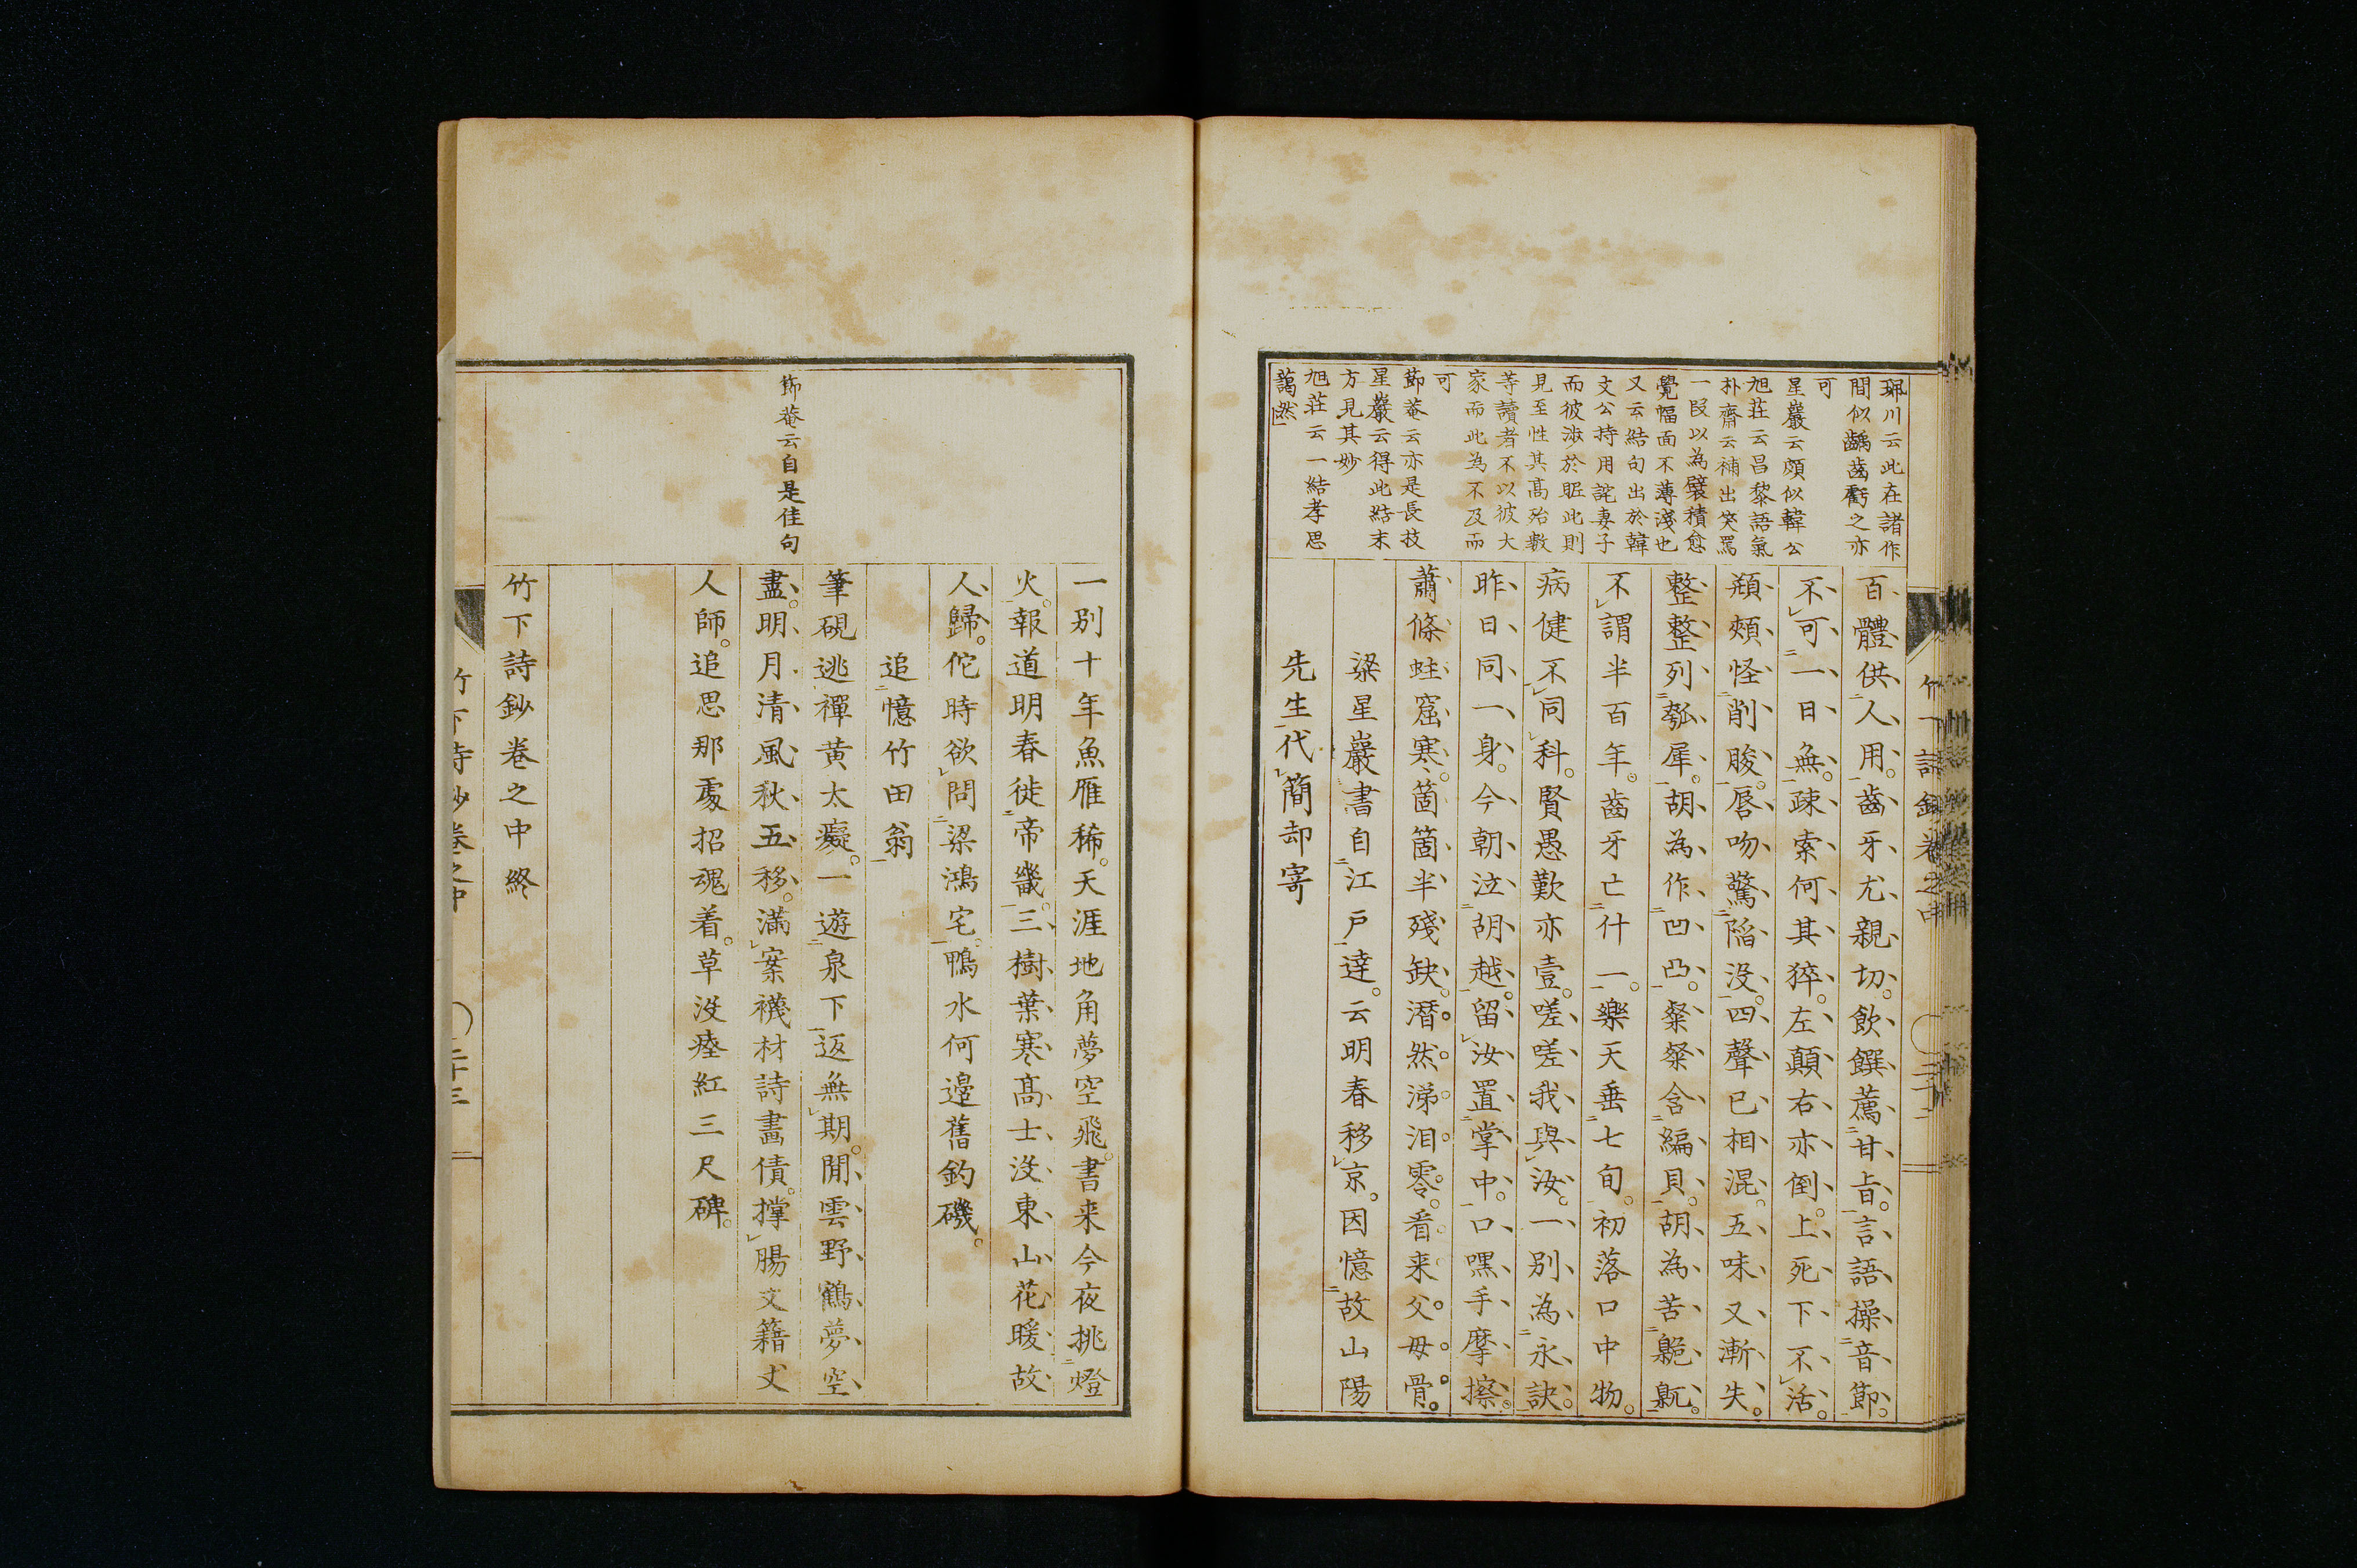 珮川云此在諸作
間似齲齒虧之亦
可
星巖云頗似韓公
旭荘云昌黎語氣
朴齋云補出笑罵
一段以為襞積愈
覺幅面不薄淺也
又云結句出於韓
文公持用詫妻子
而彼渉於眤此則
見至性其髙殆數
等讀者不以彼大
家而此為不及而
可
節菴云亦是長技
星巖云得此結末
方見其妙
旭荘云一結孝思
藹然
百體供人用。齒牙尤親切。飲饌薦甘旨。言語操音節。
不可一日無。疎索何其猝。左顛右亦倒。上死下不活。
頩頰怪削朘。唇吻驚陥没。四聲已相混。五味又漸失。
整整列瓠犀。胡為作凹凸。粲粲含編貝。胡為苦臲䡾。
不謂半百年。齒牙亡什一。樂天垂七旬。初落口中物。
病健不同科。賢愚歎亦壹。嗟嗟我與汝。一別為永訣。
昨日同一身。今朝泣胡越。留汝置掌中。口嘿手摩擦。
蕭條蛀窟寒。箇箇半殘缺。潛然涕泪零。看来父毋骨。
梁星巖書自江戸達。云明春移京。因憶故山陽
先生代簡却寄
竹下詩鈔卷之中
三十二
一別十年魚雁稀。天涯地角夢空飛。書来今夜挑燈
火。報道明春徙帝畿。三樹葉寒髙士没。東山花暖故
人歸。佗時欲問梁鴻宅。鴨水何邉舊釣磯。
追憶竹田翁
節菴云自是佳句
筆硯逃禪黄太癡。一遊泉下返無期。閒雲野鶴夢空
盡。明月清風秋五移。满案襪材詩畫債。撑腸文籍丈
人師。追思那處招魂着。草没瘞紅三尺碑。
竹下詩鈔卷之中終
竹下詩鈔卷之中